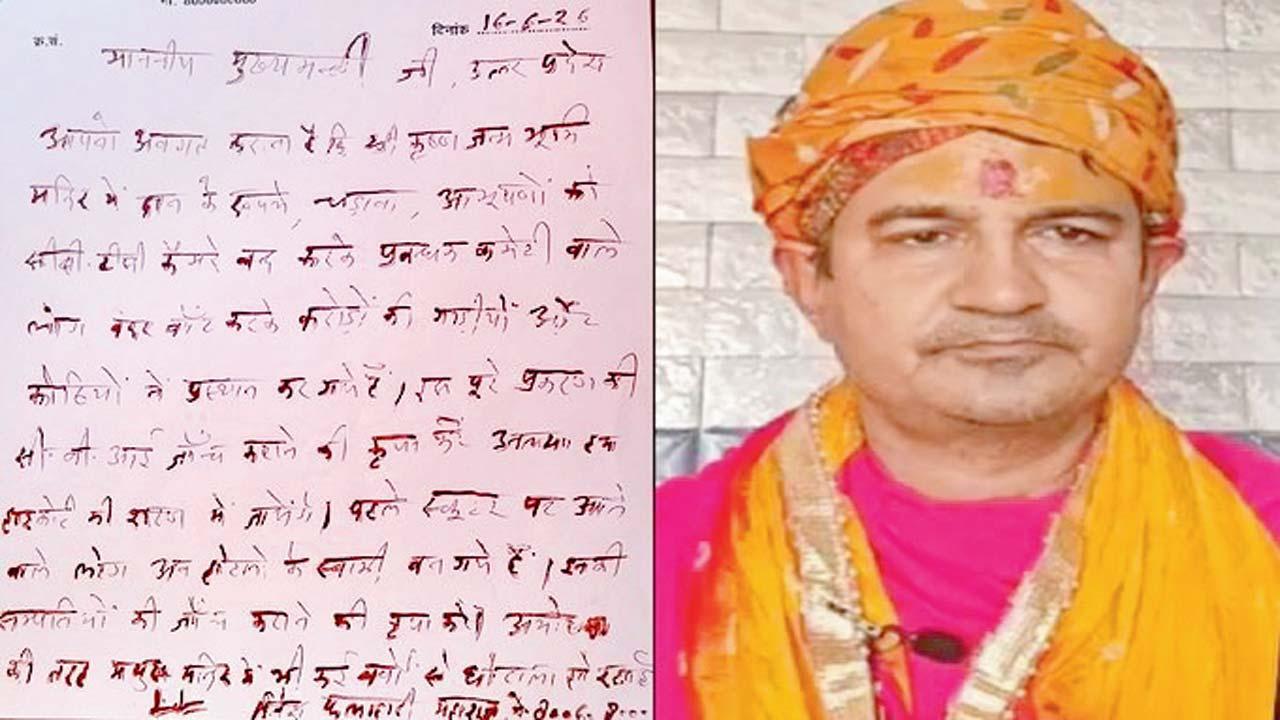 क्र.सं. दिनांक 16-6-26
माननीय मुख्यमन्त्री जी, उत्तर प्रदेश
आपको अवगत कराना है कि श्री कृष्ण जन्म भूमि
मन्दिर में दान के रुपये, चढ़ावा, आभूषणों को
सीसी टीवी कैमरे बन्द करके प्रबन्धक कमेटी वाले
लोग बंदर बाँट करके करोड़ों की गाड़ीयों और
कोठियों में प्रस्थान कर गये हैं। इस पूरे प्रकरण की
सी.बी.आई जाँच कराने की कृपा करें अन्यथा हम
हाईकोर्ट की शरण में जायेंगे। पहले स्कूटर पर आने
वाले लोग अब होटलों के स्वामी बन गये हैं। इनकी
सम्पतियों की जाँच कराने की कृपा करें। अयोध्या
की तरह मथुरा मन्दिर में भी कई वर्षों से घोटाला हो रहा है
दिनेश फलाहारी महाराज